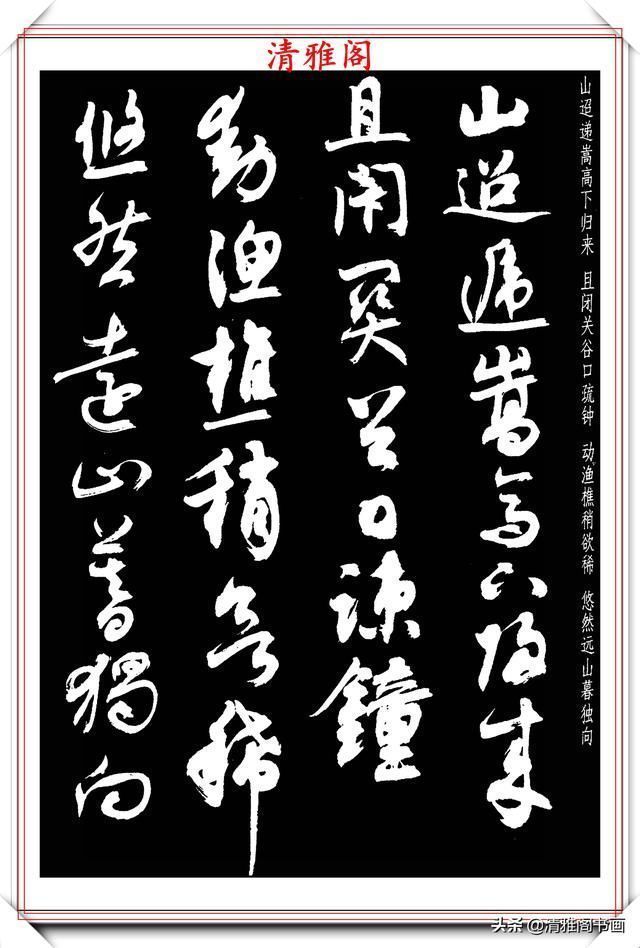 清雅阁
山迢递嵩高下归来 且闭关谷口疏钟 动渔樵稍欲稀 悠然远山暮独向
山迢遞嵩高下歸来
且閉関谷口疎鐘
動漁樵稍欲稀
悠然遠山暮獨向
头条 @清雅阁书画